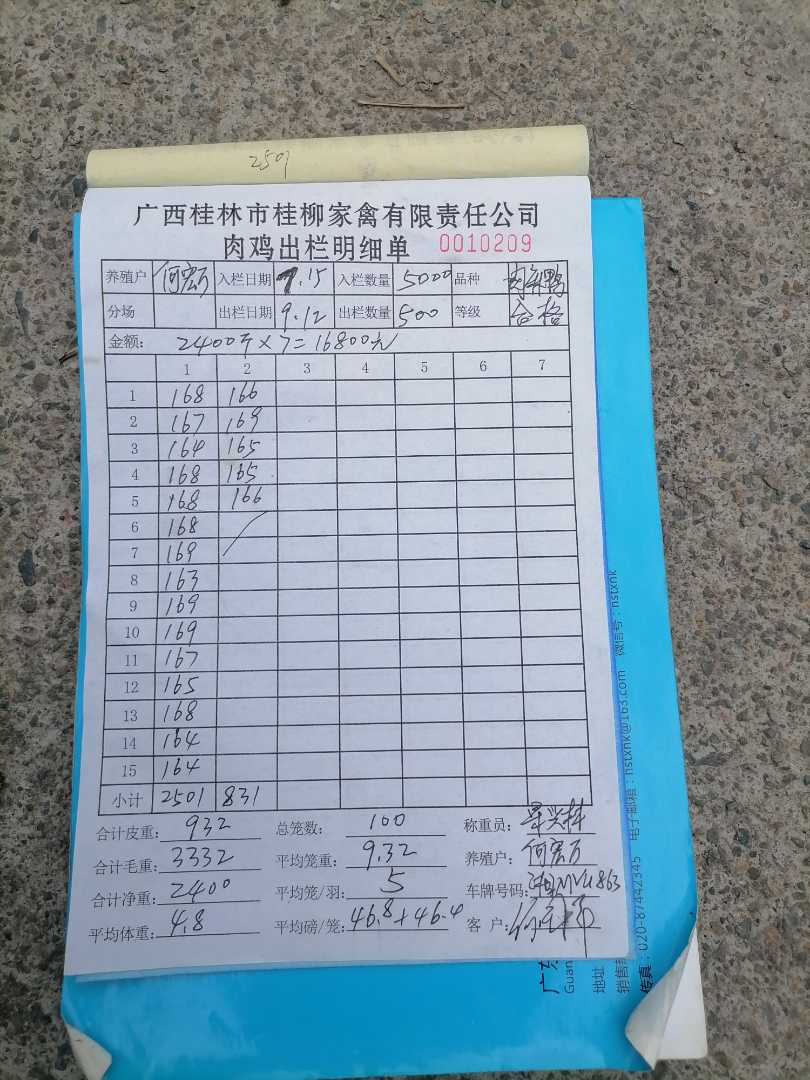 2501
广西桂林市桂柳家禽有限责任公司
肉鸡出栏明细单 0010209
养殖户 何宏万 入栏日期 7.15 入栏数量 5000 品种
分场 出栏日期 9.12 出栏数量 500 等级 合格
金额: 2400斤×7=16800元
1 2 3 4 5 6 7
1 168 166
2 167 169
3 164 165
4 168 165
5 168 166
6 168
7 169
8 163
9 169
10 169
11 167
12 165
13 168
14 164
15 164
小计 2501 831
合计皮重: 932 总笼数: 100 称重员:
合计毛重: 3332 平均笼重: 9.32 养殖户: 何宏万
合计净重: 2400 平均笼/羽: 5 车牌号码:
平均体重: 4.8 平均磅/笼: 46.8+46.4 客 户:
广东
Guan
地址
销售热
传真: 020-87442345 电子邮箱: nstxnk@163.com 微信号: nstxnk